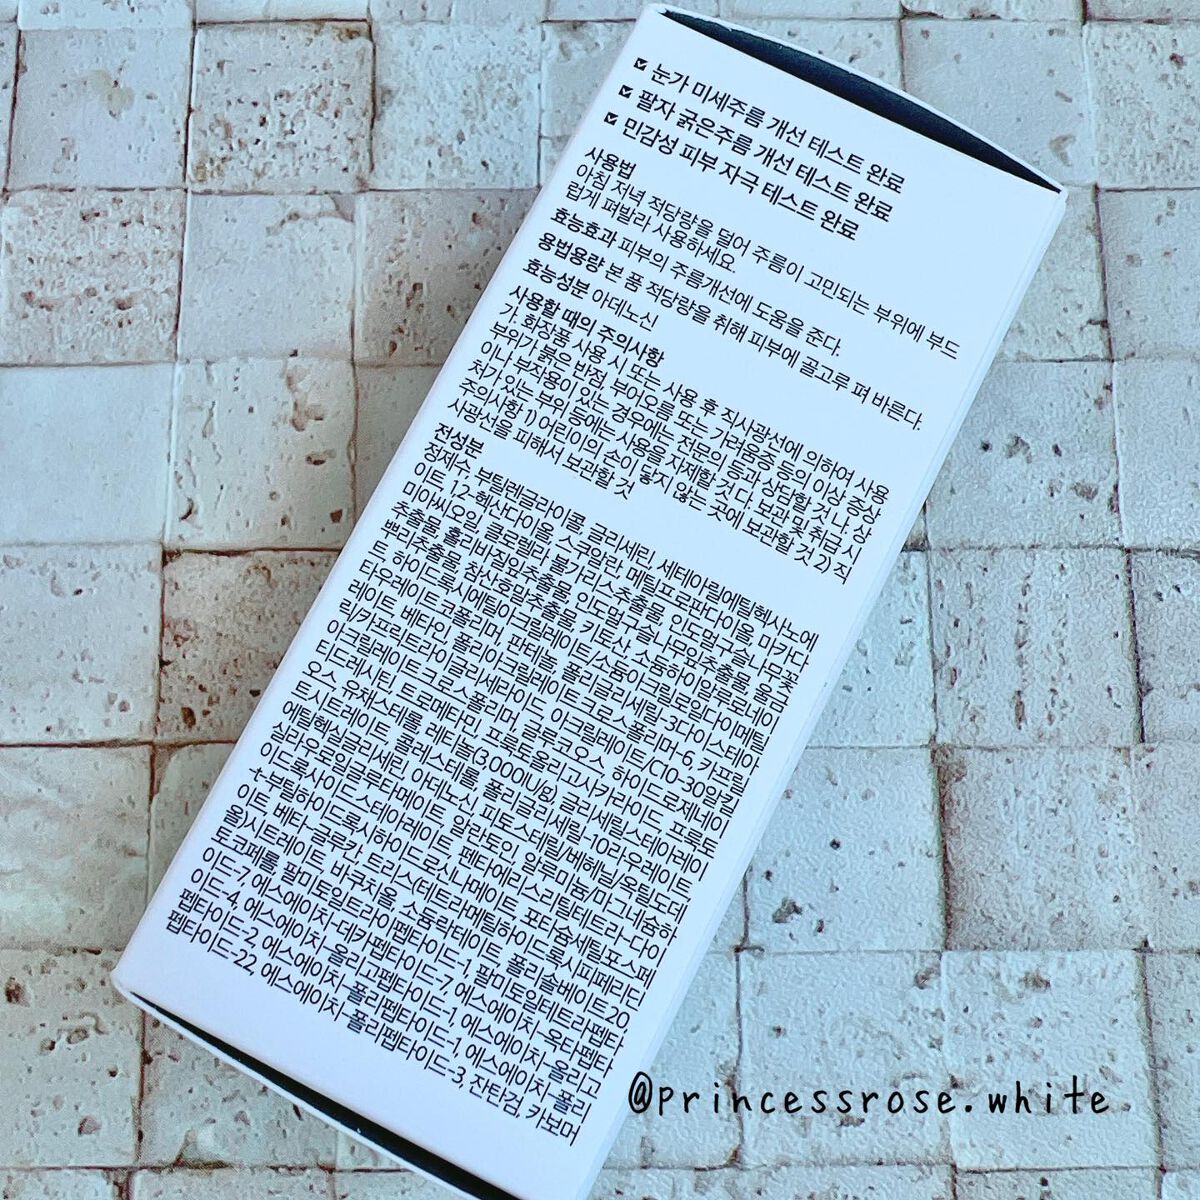 눈가 미세주름 개선 테스트 완료
팔자 굵은주름 개선 테스트 완료
민감성 피부 자극 테스트 완료
사용법
아침 저녁 적당량을 덜어 주름이 고민되는 부위에 부드
럽게 펴발라 사용하세요.
효능효과 피부의 주름개선에 도움을 준다.
용법용량 본 품 적당량을 취해 피부에 골고루 펴 바른다.
효능성분 아데노신
사용할 때의 주의사항
가. 화장품 사용 시 또는 사용 후 직사광선에 의하여 사용
부위가 붉은 반점, 부어오름 또는 가려움증 등의 이상 증상
이나 부작용이 있는 경우에는 전문의 등과 상담할 것 나. 상
처가 있는 부위 등에는 사용을 자제할 것 다. 보관 및 취급 시
주의사항 1) 어린이의 손이 닿지 않는 곳에 보관할 것 2) 직
사광선을 피해서 보관할 것
전성분
정제수, 부틸렌글라이콜, 글리세린, 세테아릴에틸헥사노에
이트, 1,2-헥산다이올, 스쿠알란, 메틸프로판다이올, 마카다
미아씨오일, 클로렐라 불가리스추출물, 인도멀구슬나무꽃
추출물, 홀리바질잎추출물, 인도멀구슬나무잎추출물, 울금
뿌리추출물, 참산호말추출물, 키토산, 소듐하이알루로네이
트, 하이드록시에틸아크릴레이트/소듐아크릴로일다이메틸
타우레이트코폴리머, 판테놀, 폴리글리세릴-3다이스테아
레이트, 베타인, 폴리아크릴레이트크로스폴리머-6, 카프릴
릭/카프릭트라이글리세라이드, 아크릴레이트/C10-30알킬
아크릴레이트크로스폴리머, 글루코오스, 하이드로제네이
티드레시틴, 트로메타민, 프룩토올리고사카라이드, 프룩토
오스, 유채스테롤, 레티놀(3,000IU/g), 글리세릴스테아레이
트시트레이트, 콜레스테롤, 폴리글리세릴-10라우레이트,
에틸헥실글리세린, 아데노신, 피토스테릴/베헤닐/옥틸도데
실라우로일글루타메이트, 알란토인, 알루미늄/마그네슘하
이드록사이드스테아레이트, 펜타에리스리틸테트라-다이-
t-부틸하이드록시하이드로신나메이트, 포타슘세틸포스페
이트, 베타-글루칸, 트리스(테트라메틸하이드록시피페리딘
올)시트레이트, 바쿠치올, 소듐락테이트, 폴리솔베이트20,
토코페롤, 팔미토일트라이펩타이드-1, 팔미토일테트라펩타
이드-7, 에스에이치-데카펩타이드-7, 에스에이치-옥타펩타
이드-4, 에스에이치-올리고펩타이드-1, 에스에이치-올리고
펩타이드-2, 에스에이치-폴리펩타이드-1, 에스에이치-폴리
펩타이드-22, 에스에이치-폴리펩타이드-3, 잔탄검, 카보머
@princessrose.white